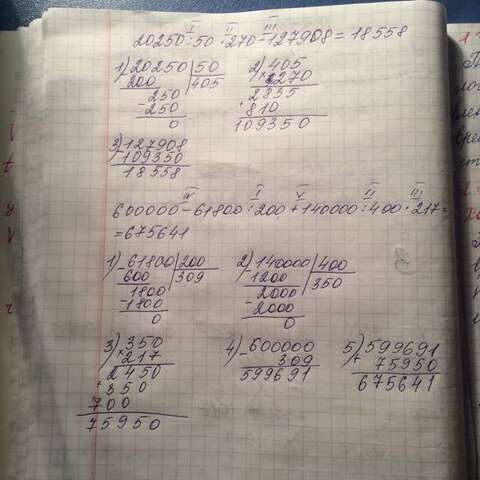 I II III
20250:50·270-127908=18558
1) 20250 |50
200 405
250
-250
0
2) 405
×270
2835
+810
109350
3) 127908
-109350
18558
IV I V II III
600000-61800:200+140000:400·217=
=675641
1) -61800 |200
600 309
1800
-1800
0
2) -140000 |400
1200 350
2000
-2000
0
3) ×350
217
2450
+350
700
75950
4) -600000
309
599691
5) +599691
75950
675641